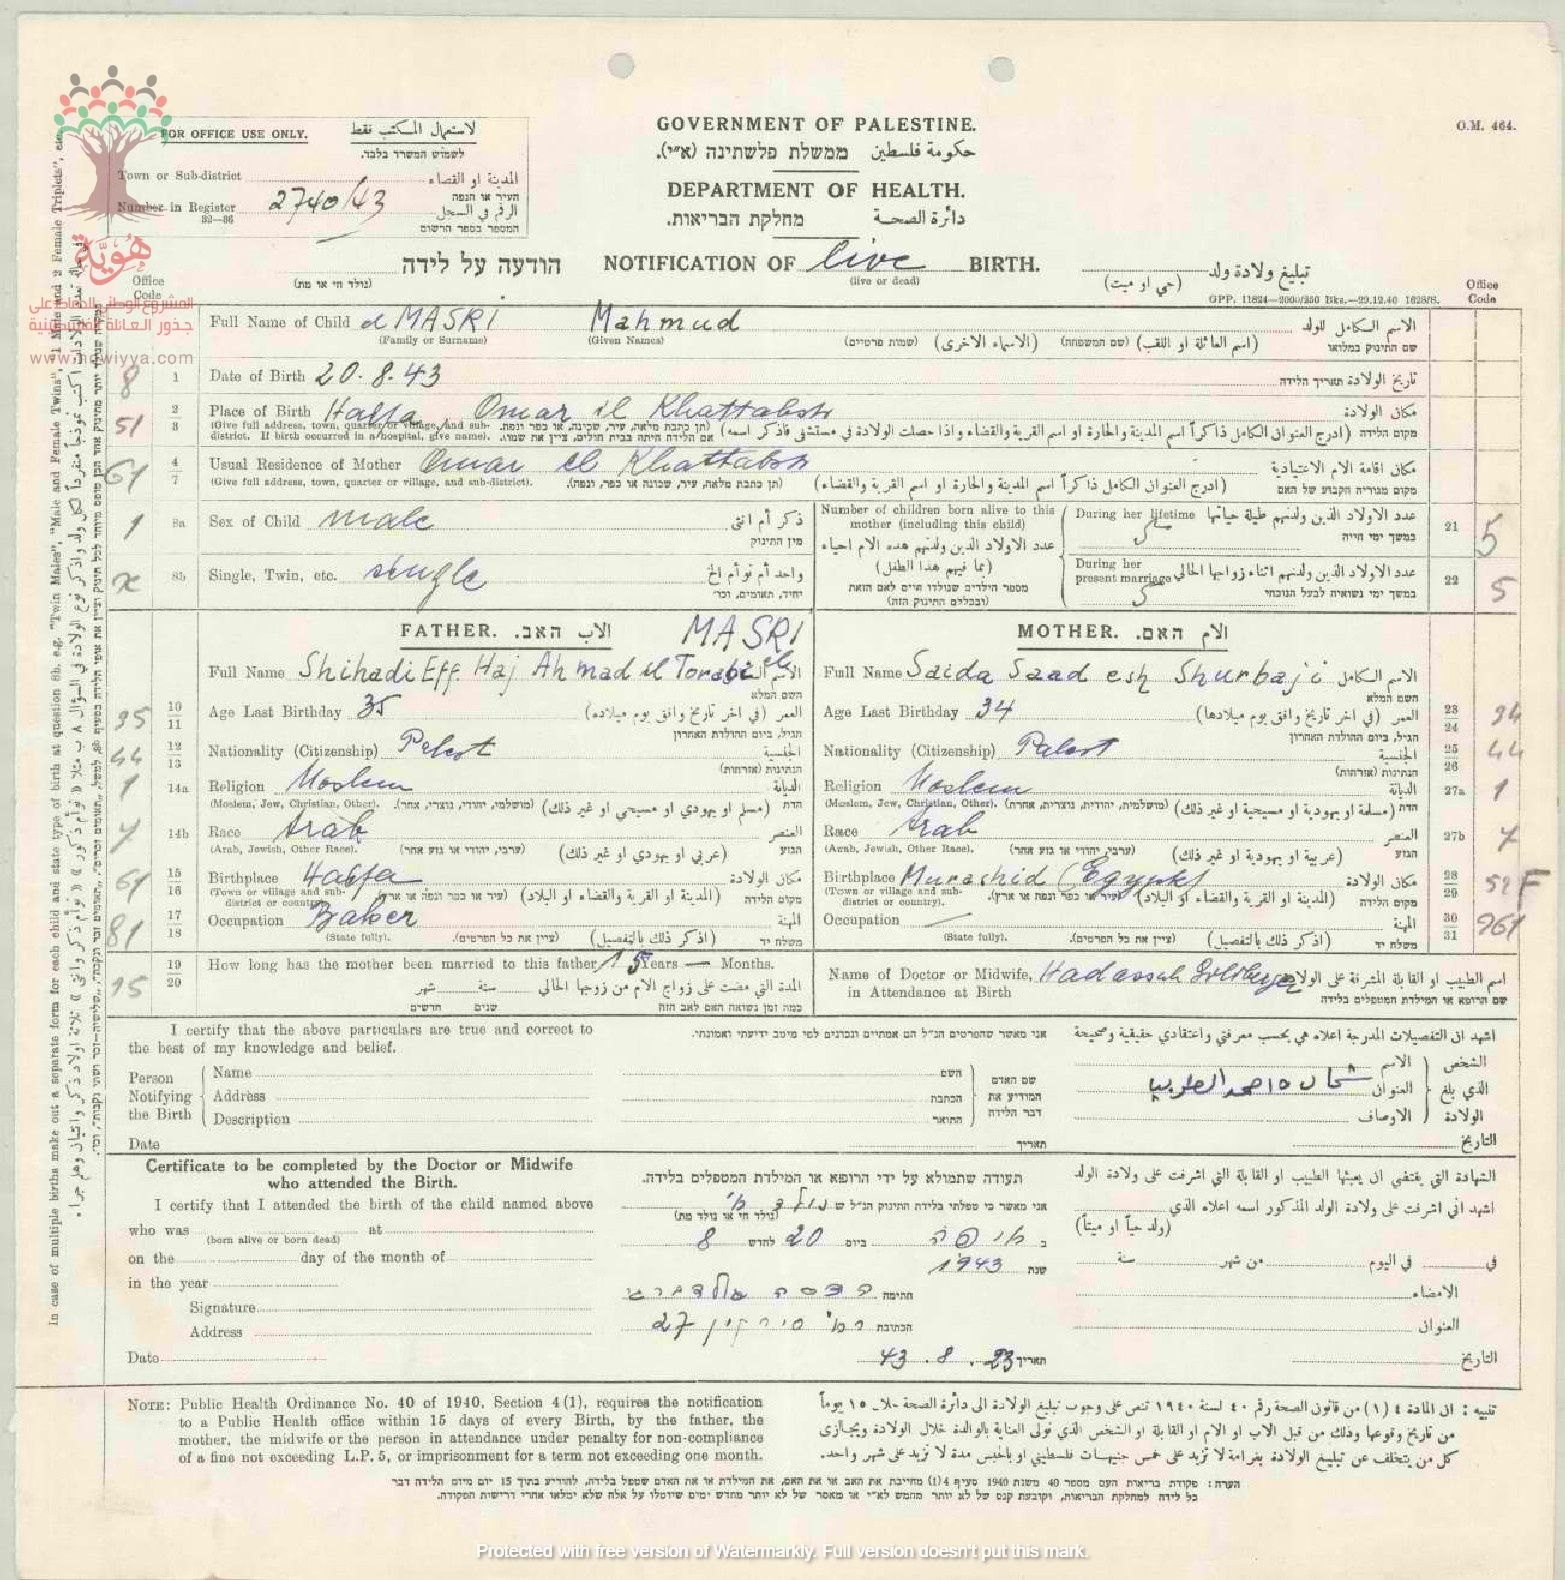 O.M. 464.
FOR OFFICE USE ONLY. لاستعمال المكتب فقط
לשמוש המשרד בלבד.
Town or Sub-district المدينة او القضاء
העיר או הנפה
Number in Register 2740/43 الرقم في السجل
32—36 המספר בספר הרשום
GOVERNMENT OF PALESTINE.
ממשלת פלשתינה (א״י). حكومة فلسطين
DEPARTMENT OF HEALTH.
מחלקת הבריאות. دائرة الصحة
הודעה על לידה NOTIFICATION OF live BIRTH. تبليغ ولادة ولد
(נולד חי או מת) (live or dead) (حي او ميت)
GPP. 11824—2000/250 Bks.—29.12.40 1628/8.
Office Code
Office Code
هُوِيَّة
المشروع الوطني للحفاظ على
جذور العائلة الفلسطينية
www.howiyya.com
Full Name of Child el MASRI Mahmud الاسم الكامل للولد
(Family or Surname) (Given Names) (שמות פרטיים) (الاسماء الاخرى) (שם המשפחה) (اسم العائلة او اللقب) שם התינוק במלואו
8 1 Date of Birth 20.8.43 تاريخ الولادة תאריך הלידה
51 2/3 Place of Birth Haifa, Omar el Khattab str مكان الولادة
(Give full address, town, quarter or village, and sub-district. If birth occurred in a hospital, give name). (תן כתבת מלאה, עיר, שכונה, או כפר ונפה. אם הלידה היתה בבית חולים, ציין את שמו). (ادرج العنوان الكامل ذاكراً اسم المدينة والحارة او اسم القرية والقضاء واذا حصلت الولادة في مستشفى فاذكر اسمه) מקום הלידה
61 4/7 Usual Residence of Mother Omar el Khattab str مكان اقامة الام الاعتيادية
(Give full address, town, quarter or village, and sub-district). (תן כתבת מלאה, עיר, שכונה או כפר, ונפה). (ادرج العنوان الكامل ذاكراً اسم المدينة والحارة او اسم القرية والقضاء) מקום מגוריה הקבוע של האם
1 8a Sex of Child male ذكر أم انثى
מין התינוק
x 8b Single, Twin, etc. single واحد أم توأم الخ
יחיד, תאומים, וכו׳
Number of children born alive to this mother (including this child)
عدد الاولاد الذين ولدتهم هذه الام احياء
(بما فيهم هذا الطفل)
מספר הילדים שנולדו חיים לאם הזאת
(ובכללם התינוק הזה)
During her lifetime 5 عدد الاولاد الذين ولدتهم طيلة حياتها 21 5
במשך ימי חייה
During her present marriage 5 عدد الاولاد الذين ولدتهم اثناء زواجها الحالي 22 5
במשך ימי נשואיה לבעל הנוכחי
FATHER. האב. الاب MASRI
Full Name Shihadi Eff. Haj Ahmad el Torabi el
השם המלא
35 10/11 Age Last Birthday 35 العمر (في اخر تاريخ وافق يوم ميلاده)
הגיל, ביום ההולדת האחרון
44 12/13 Nationality (Citizenship) Palest الجنسية
הנתינות (אזרחות)
1 14a Religion Moslem الديانة
(Moslem, Jew, Christian, Other). (מושלמי, יהודי, נוצרי, אחר). (مسلم او يهودي او مسيحي او غير ذلك) הדת
7 14b Race Arab العنصر
(Arab, Jewish, Other Race). (ערבי, יהודי או גזע אחר) (عربي او يهودي او غير ذلك) הגזע
61 15/16 Birthplace Haifa مكان الولادة
(Town or village and sub-district or country). (עיר או כפר ונפה או ארץ). (المدينة او القرية والقضاء او البلاد) מקום הלידה
81 17/18 Occupation Baker المهنة
(State fully). (ציין את כל הפרטים). (اذكر ذلك بالتفصيل) משלח יד
15 19/20 How long has the mother been married to this father 15 Years — Months.
المدة التي مضت على زواج الام من زوجها الحالي سنة شهر
כמה זמן נשואה האם לאב הזה שנים חדשים
MOTHER. האם. الام
Full Name Saida Saad esh Shurbaji الاسم الكامل
השם המלא
Age Last Birthday 34 العمر (في اخر تاريخ وافق يوم ميلادها) 23/24 34
הגיל, ביום ההולדת האחרון
Nationality (Citizenship) Palest الجنسية 25/26 44
הנתינות (אזרחות)
Religion Moslem الديانة 27a 1
(Moslem, Jew, Christian, Other). (מושלמית, יהודית, נוצרית, אחרת). (مسلمة او يهودية او مسيحية او غير ذلك) הדת
Race Arab العنصر 27b 7
(Arab, Jewish, Other Race). (ערבי, יהודי או גזע אחר) (عربية او يهودية او غير ذلك) הגזע
Birthplace (Egypt) مكان الولادة 28/29 52 F
(Town or village and sub-district or country). (עיר או כפר ונפה או ארץ). (المدينة او القرية والقضاء او البلاد) מקום הלידה
Occupation — المهنة 30/31 961
(State fully). (ציין את כל הפרטים). (اذكر ذلك بالتفصيل) משלח יד
Name of Doctor or Midwife, in Attendance at Birth Hadassah Goldberg اسم الطبيب او القابلة المشرفة على الولادة
שם הרופא או המילדת המטפלים בלידה
I certify that the above particulars are true and correct to the best of my knowledge and belief.
אני מאשר שהפרטים הנ״ל הם אמתיים ונכונים לפי מיטב ידיעתי ואמונתי.
اشهد ان التفصيلات المدرجة اعلاه هي بحسب معرفتي واعتقادي حقيقية وصحيحة
Person Notifying the Birth
Name השם
Address הכתבת
Description התואר
שם האדם המודיע את דבר הלידה
الشخص الذي بلغ الولادة
الاسم
العنوان
الاوصاف
Date תאריך التاريخ
Certificate to be completed by the Doctor or Midwife who attended the Birth.
I certify that I attended the birth of the child named above
who was at
(born alive or born dead)
on the day of the month of
in the year
Signature
Address
Date
תעודה שתמולא על ידי הרופא או המילדת המטפלים בלידה.
אני מאשר כי טפלתי בלידת התינוק הנ״ל ש נולד חי
(נולד חי או נולד מת)
ב חיפה ביום 20 לחדש 8
שנת 1943
חתימה הדסה גולדברג
הכתובת רח׳ סירקין 27
תאריך 23.8.43
الشهادة التي يقتضي ان يعبئها الطبيب او القابلة التي اشرفت على ولادة الولد
اشهد اني اشرفت على ولادة الولد المذكور اسمه اعلاه الذي
(ولد حياً او ميتاً)
في في اليوم من شهر سنة
الامضاء
العنوان
التاريخ
NOTE: Public Health Ordinance No. 40 of 1940, Section 4 (1), requires the notification
to a Public Health office within 15 days of every Birth, by the father, the
mother, the midwife or the person in attendance under penalty for non-compliance
of a fine not exceeding L.P. 5, or imprisonment for a term not exceeding one month.
تنبيه : ان المادة ٤ (١) من قانون الصحة رقم ٤٠ لسنة ١٩٤٠ تنص على وجوب تبليغ الولادة الى دائرة الصحة خلال ١٥ يوماً
من تاريخ وقوعها وذلك من قبل الاب او الام او القابلة او الشخص الذي تولى العناية بالوالدة خلال الولادة ويجازى
كل من يتخلف عن تبليغ الولادة بغرامة لا تزيد على خمس جنيهات فلسطيني او بالحبس مدة لا تزيد على شهر واحد.
הערה : פקודת בריאות העם מספר 40 משנת 1940 סעיף 4(1) מחייבת את האב או את האם, את המילדת או את האדם שטפל בלידה, להודיע בתוך 15 יום מיום הלידה דבר
כל לידה למחלקת הבריאות, וקובעת קנס של לא יותר מחמש לא״י או מאסר של לא יותר מחדש ימים שיוטלו על אלה שלא ימלאו אחרי דרישות הפקודה.
In case of multiple births make out a separate form for each child and state type of birth at question 8b, e.g. "Twin Males", "Male and Female Twins", "1 Male and 2 Female Triplets", etc.
Protected with free version of Watermarkly. Full version doesn't put this mark.